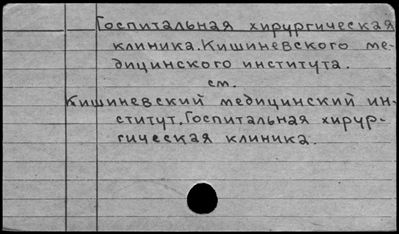 Госпитальная хирургическая
клиника. Кишиневского ме-
дицинского института.
см.
Кишиневский медицинский ин-
ститут. Госпитальная хирур-
гическая клиника.